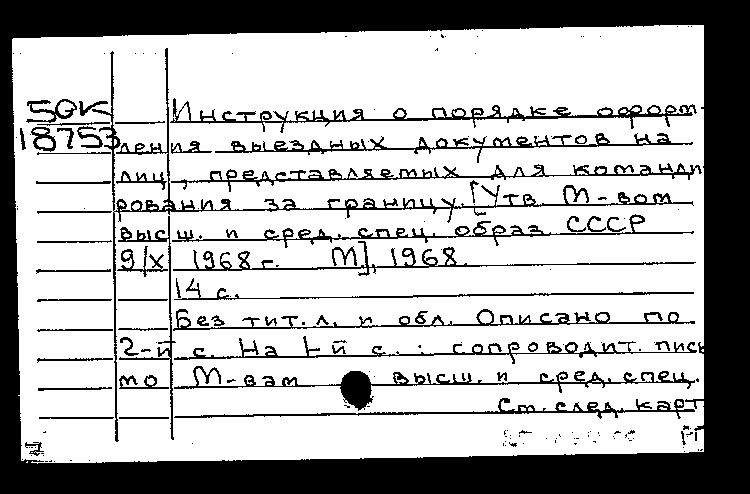 5GK
18753
Инструкция о порядке оформ-
ления выездных документов на
лиц, представляемых для команди-
рования за границу. [Утв М-вом
высш. и сред. спец. образ СССР
9/X 1968 г. М], 1968.
14 с.
Без тит. л. и обл. Описано по
2-й с. На 1-й с.: сопроводит. пись
мо М-вам высш. и сред. спец.
См. след. карт